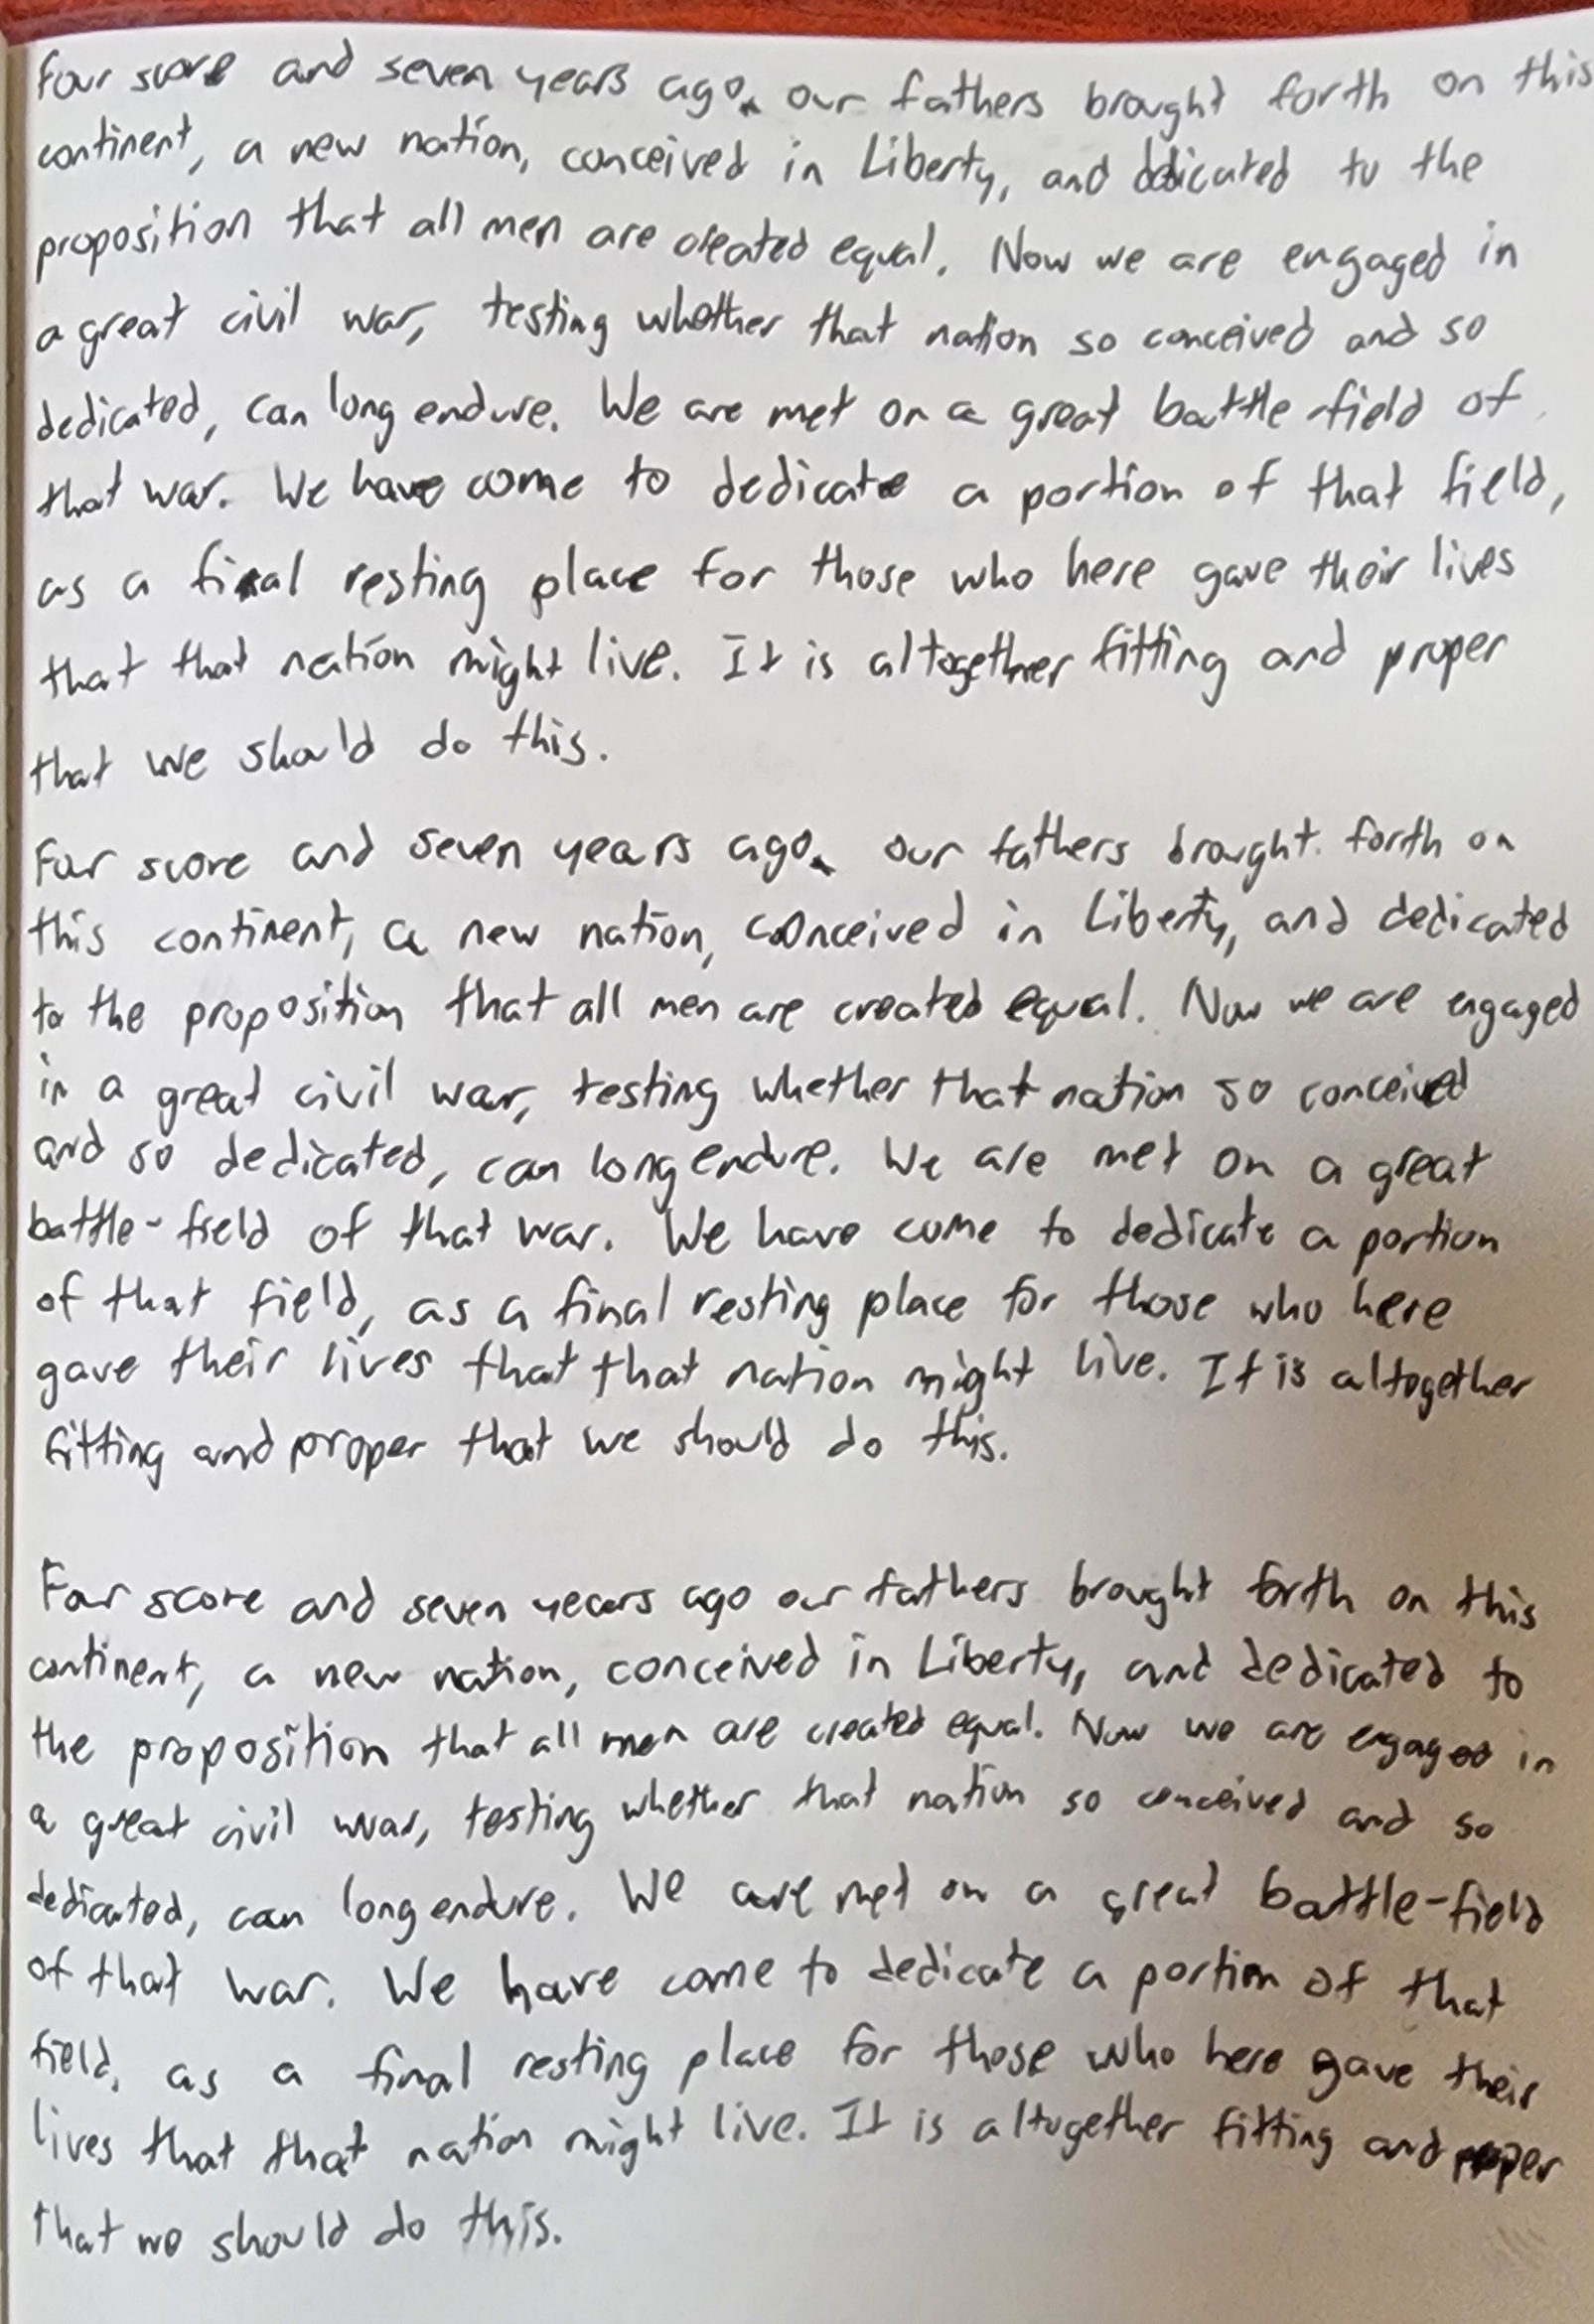 Four score and seven years ago, our fathers brought forth on this
continent, a new nation, conceived in Liberty, and dedicated to the
proposition that all men are created equal. Now we are engaged in
a great civil war, testing whether that nation so conceived and so
dedicated, can long endure. We are met on a great battle-field of
that war. We have come to dedicate a portion of that field,
as a final resting place for those who here gave their lives
that that nation might live. It is altogether fitting and proper
that we should do this.
Four score and seven years ago, our fathers brought forth on
this continent, a new nation, conceived in Liberty, and dedicated
to the proposition that all men are created equal. Now we are engaged
in a great civil war, testing whether that nation so conceived
and so dedicated, can long endure. We are met on a great
battle-field of that war. We have come to dedicate a portion
of that field, as a final resting place for those who here
gave their lives that that nation might live. It is altogether
fitting and proper that we should do this.
Four score and seven years ago our fathers brought forth on this
continent, a new nation, conceived in Liberty, and dedicated to
the proposition that all men are created equal. Now we are engaged in
a great civil war, testing whether that nation so conceived and so
dedicated, can long endure. We are met on a great battle-field
of that war. We have come to dedicate a portion of that
field, as a final resting place for those who here gave their
lives that that nation might live. It is altogether fitting and proper
that we should do this.